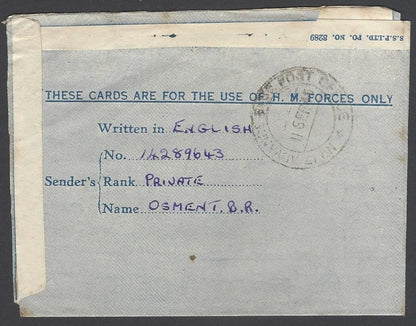 S.S.P.LTD. P.O. NO. 8269
THESE CARDS ARE FOR THE USE OF H. M. FORCES ONLY
Written in ENGLISH
No. 14289643
Sender's Rank PRIVATE
Name OSMENT. B. R.
POST OFFICE